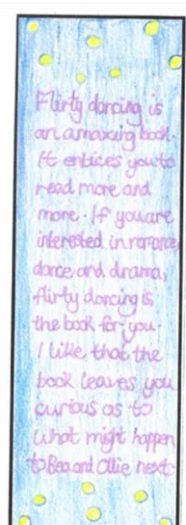 Flirty dancing is
an amazing book.
It entices you to
read more and
more. If you are
interested in romance,
dance and drama,
flirty dancing is
the book for you.
I like that the
book leaves you
curious as to
what might happen
to Bea and Ollie next.